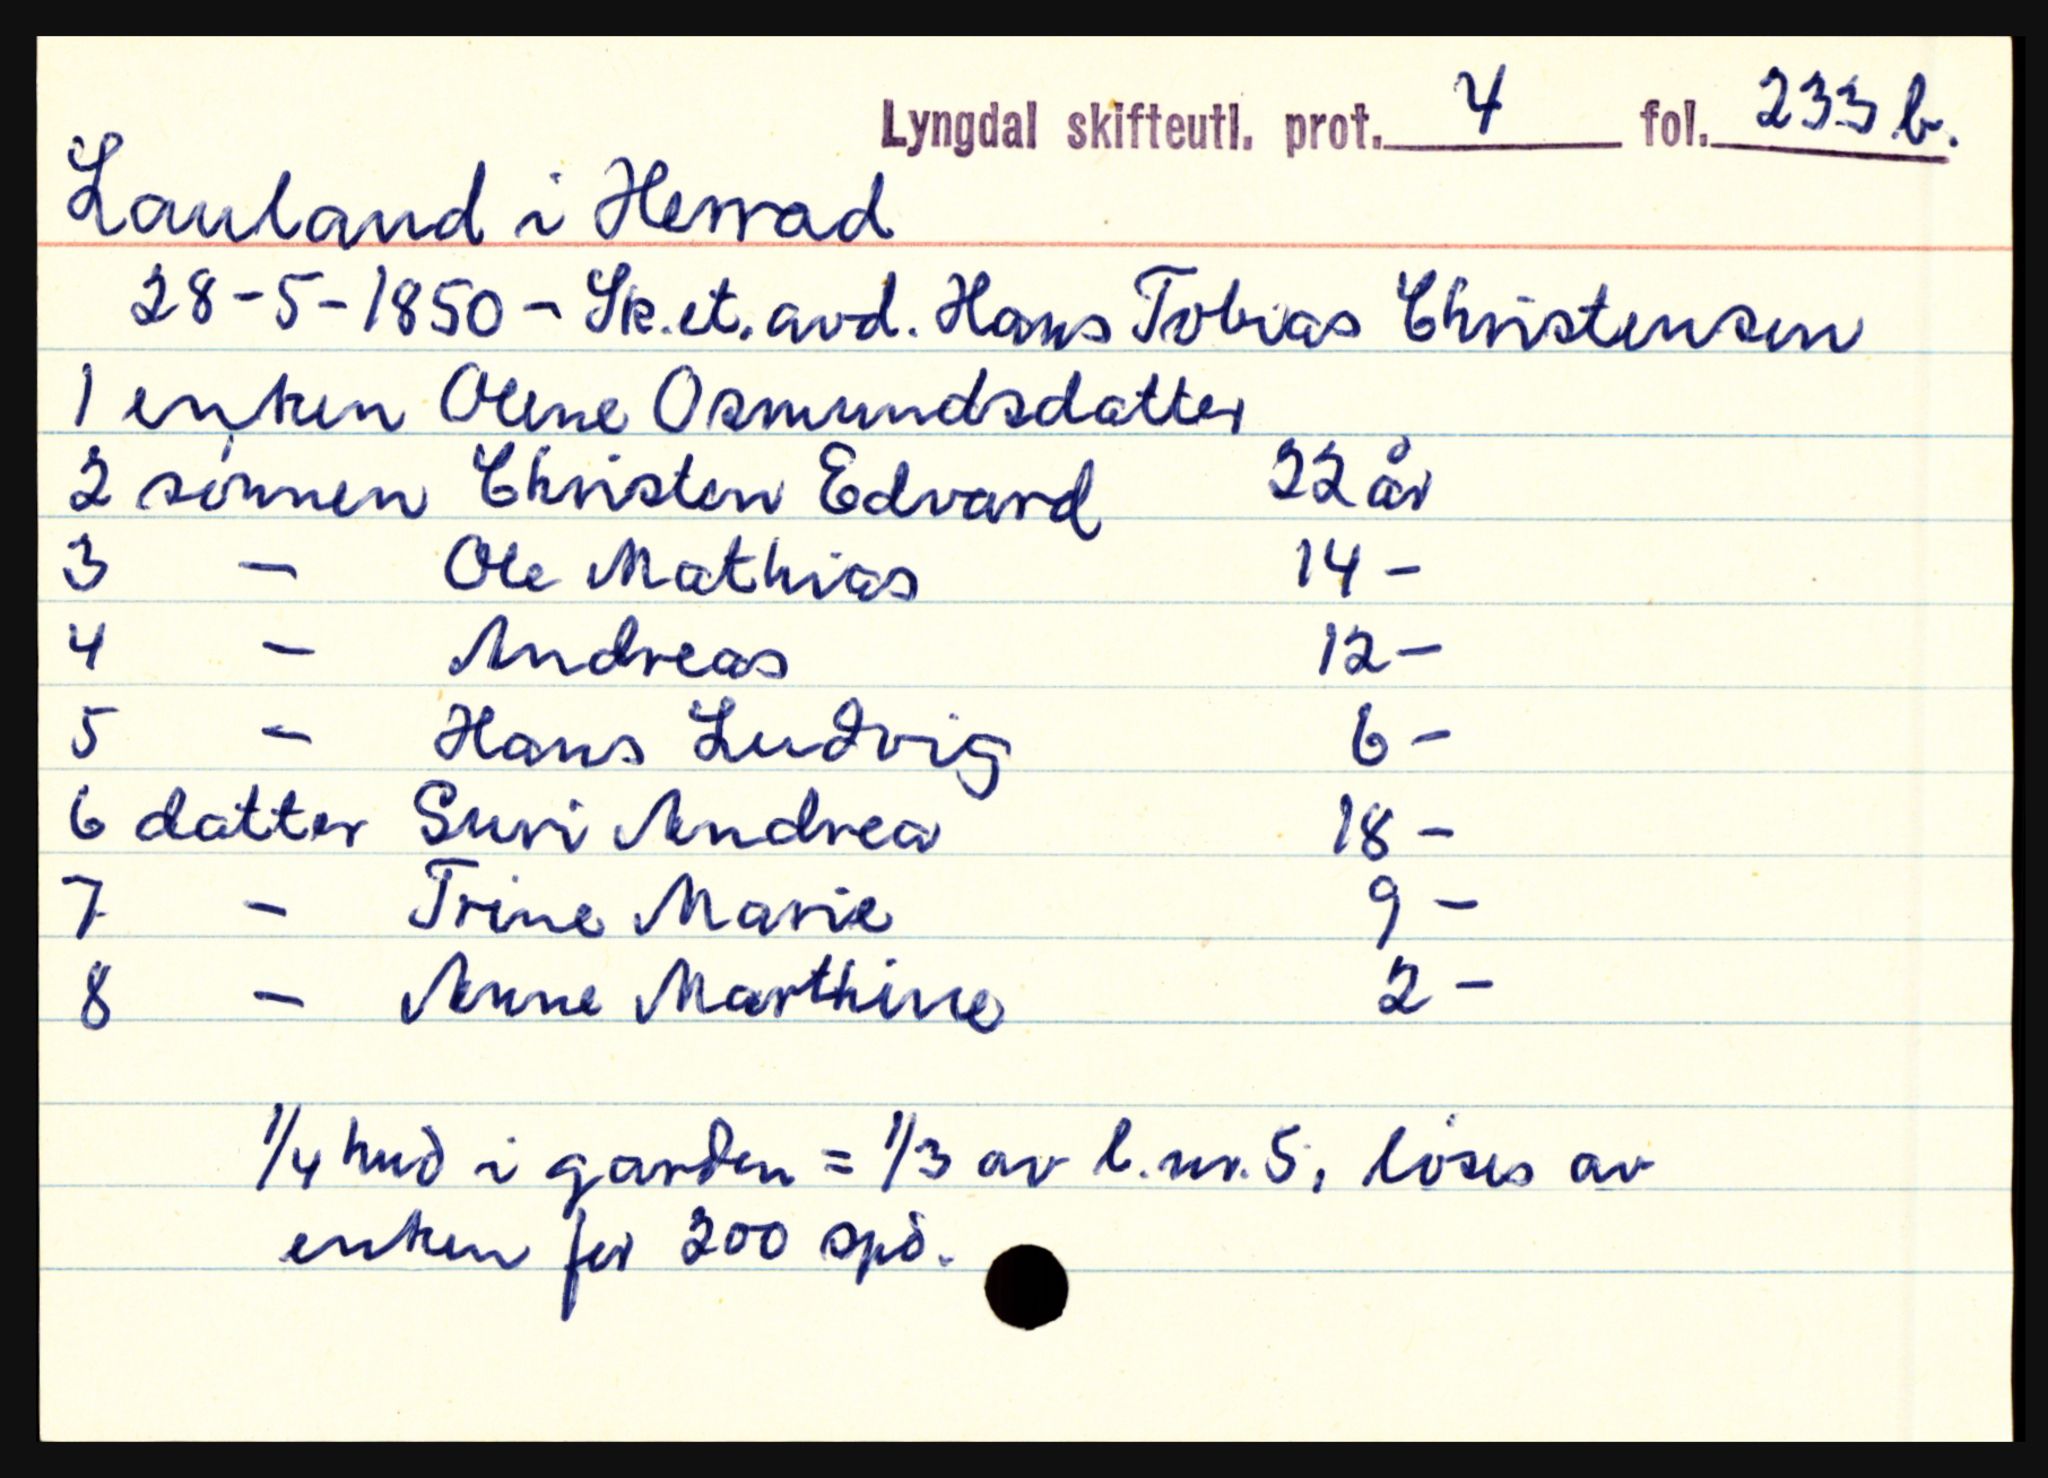 Lyngdal skifteutl. prot. 4 fol. 233 b.
Lauland i Herrad
28-5-1850 - Sk.et.avd. Hans Tobias Christensen
1 enken Olene Osmundsdatter
2 sønnen Christen Edvard 22 år
3 - Ole Mathias 14 -
4 - Andreas 12 -
5 - Hans Ludvig 6 -
6 datter Suri Andrea 18 -
7 - Trine Marie 9 -
8 - Anne Marthine 2 -
1/4 hud i garden = 1/3 av l.nr. 5, løses av
enken for 200 spd.